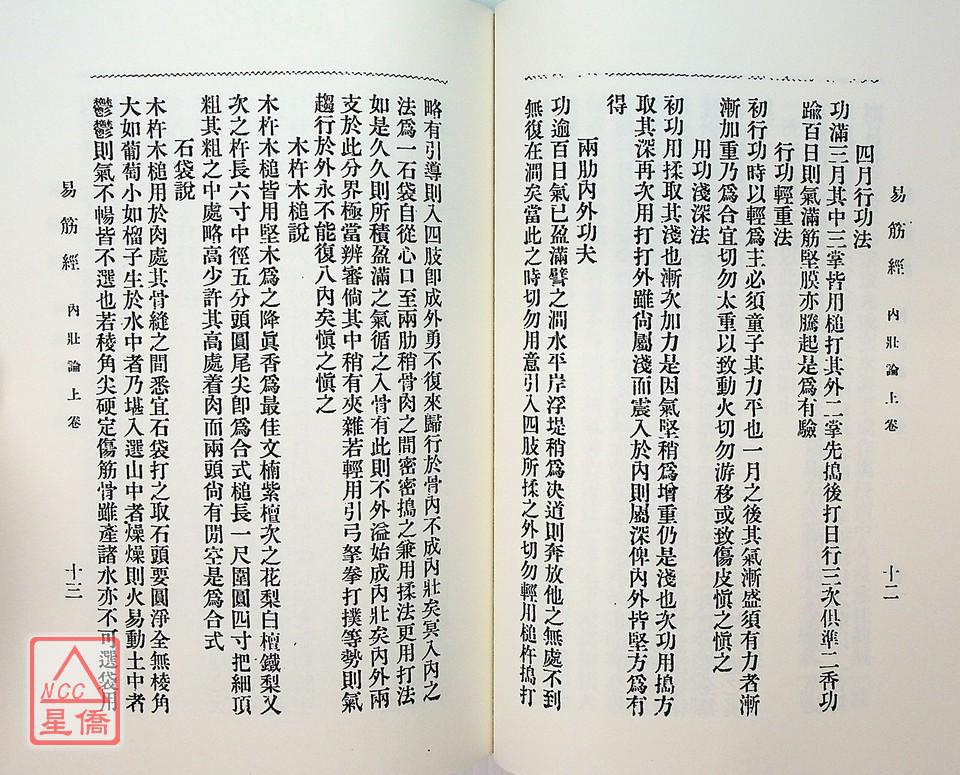 四月行功法
功滿三月其中三掌皆用槌打其外二掌先搗後打日行三次俱準二香功
踰百日則氣滿筋堅膜亦騰起是爲有驗
行功輕重法
初行功時以輕爲主必須童子其力平也一月之後其氣漸盛須有力者漸
漸加重乃爲合宜切勿太重以致動火切勿游移或致傷皮慎之慎之
用功淺深法
初功用揉取其淺也漸次加力是因氣堅稍爲增重仍是淺也次功用搗方
取其深再次用打打外雖尚屬淺而震入於內則屬深俾內外皆堅方爲有
得
兩肋內外功夫
功逾百日氣已盈滿譬之澗水平岸浮堤稍爲决道則奔放他之無處不到
無復在澗矣當此之時切勿用意引入四肢所揉之外切勿輕用槌杵搗打
易筋經 內壯論上卷 十二
略有引導則入四肢卽成外勇不復來歸行於骨內不成內壯矣冥入內之
法爲一石袋自從心口至兩肋稍骨肉之間密密搗之兼用揉法更用打法
如是久久則所積盈滿之氣循之入骨有此則不外溢始成內壯矣內外兩
支於此分界極當辨審倘其中稍有夾雜若輕用引弓拏拳打撲等勢則氣
趨行於外永不能復八內矣慎之慎之
木杵木槌說
木杵木槌皆用堅木爲之降眞香爲最佳文楠紫檀次之花梨白檀鐵梨又
次之杵長六寸中徑五分頭圓尾尖卽爲合式槌長一尺圍圓四寸把細頂
粗其粗之中處略高少許其高處着肉而兩頭尙有閒空是爲合式
石袋說
木杵木槌用於肉處其骨縫之間悉宜石袋打之取石頭要圓淨全無稜角
大如葡萄小如榴子生於水中者乃堪入選山中者燥燥則火易動土中者
鬱鬱則氣不暢皆不選也若稜角尖硬定傷筋骨雖產諸水亦不可選袋用
易筋經 內壯論上卷 十三
NCC
星僑